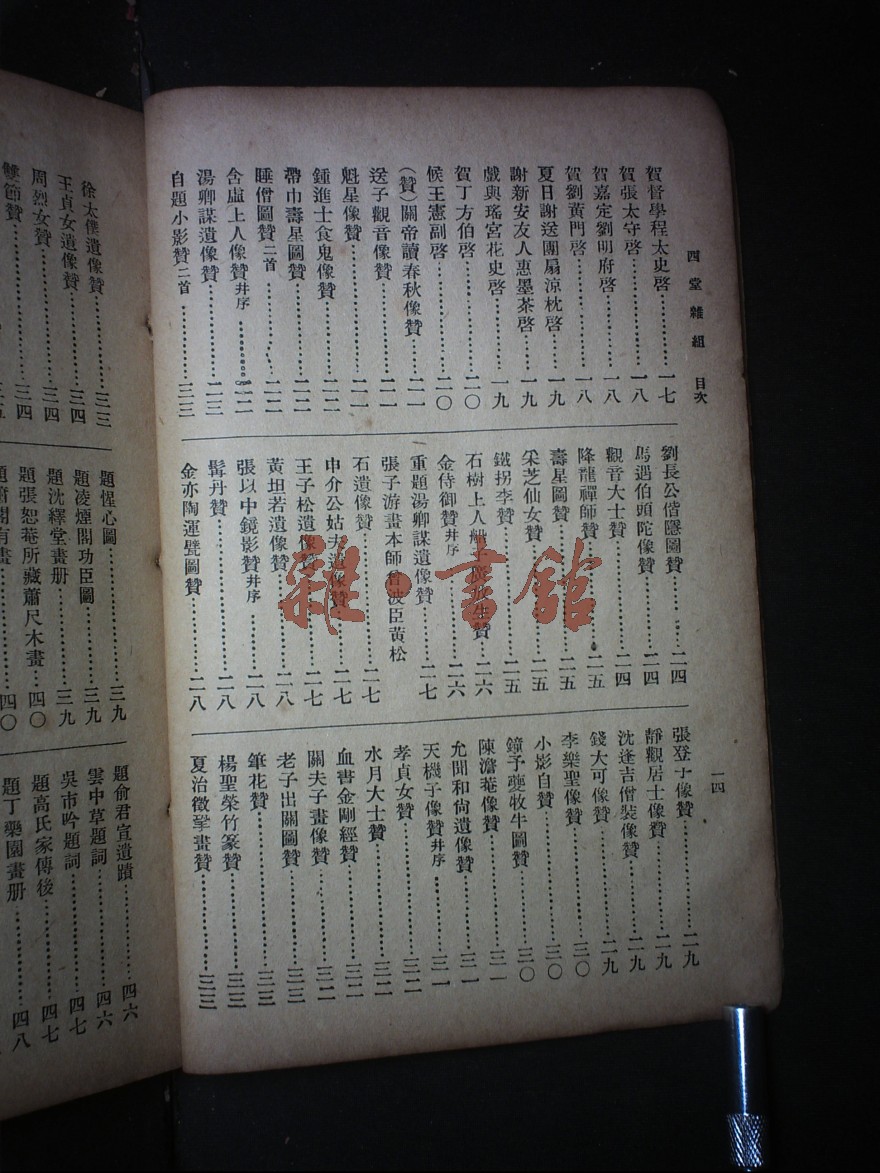 四堂雜組 目次
一四
賀督學程太史啓⋯⋯一七
賀張太守啓⋯⋯一八
賀嘉定劉明府啓⋯⋯一八
賀劉黃門啓⋯⋯一八
夏日謝送團扇涼枕啓⋯⋯一九
謝新安友人惠墨茶啓⋯⋯一九
戲與瑤宮花史啓⋯⋯一九
賀丁方伯啓⋯⋯二〇
候王憲副啓⋯⋯二〇
(贊)關帝讀春秋像贊⋯⋯二一
送子觀音像贊⋯⋯二一
魁星像贊⋯⋯二一
鍾進士食鬼像贊⋯⋯二二
帶巾壽星圖贊⋯⋯二二
睡僧圖贊二首⋯⋯二二
舍虛上人像贊并序⋯⋯二二
湯卿謀遺像贊⋯⋯二三
自題小影贊二首⋯⋯二三
劉長公偕隱圖贊⋯⋯二四
馬遇伯頭陀像贊⋯⋯二四
觀音大士贊⋯⋯二四
降龍禪師贊⋯⋯二五
壽星圖贊⋯⋯二五
采芝仙女贊⋯⋯二五
鐵拐李贊⋯⋯二五
石樹上人放生贊⋯⋯二六
金侍御贊并序⋯⋯二六
重題湯卿謀遺像贊⋯⋯二七
張子游畫本師曾波臣黃松
石遺像贊⋯⋯二七
申介公姑夫遺像贊⋯⋯二七
王子松遺像贊⋯⋯二七
黃坦若遺像贊⋯⋯二八
張以中鏡影贊并序⋯⋯二八
髯丹贊⋯⋯二八
金亦陶運甓圖贊⋯⋯二八
張登子像贊⋯⋯二九
靜觀居士像贊⋯⋯二九
沈逢吉僧裝像贊⋯⋯二九
錢大可像贊⋯⋯二九
李樂聖像贊⋯⋯三〇
小影自贊⋯⋯三〇
鐘予夔牧牛圖贊⋯⋯三〇
陳澹菴像贊⋯⋯三一
允聞和尚遺像贊⋯⋯三一
天機子像贊并序⋯⋯三一
孝貞女贊⋯⋯三二
水月大士贊⋯⋯三二
血書金剛經贊⋯⋯三二
關夫子畫像贊⋯⋯三二
老子出關圖贊⋯⋯三三
筆花贊⋯⋯三三
楊聖榮竹篆贊⋯⋯三三
夏治徵拏畫贊⋯⋯三三
徐太僕遺像贊⋯⋯三三
王貞女遺像贊⋯⋯三四
周烈女贊⋯⋯三四
雙節贊⋯⋯三四
題惺心圖⋯⋯三九
題凌煙閣功臣圖⋯⋯三九
題沈繹堂畫册⋯⋯三九
題張恕菴所藏蕭尺木畫⋯⋯四〇
題俞君宣遺蹟⋯⋯四六
雲中草題詞⋯⋯四六
吳市吟題詞⋯⋯四七
題高氏家傳後⋯⋯四七
題丁藥園畫册⋯⋯四八
雜·書館